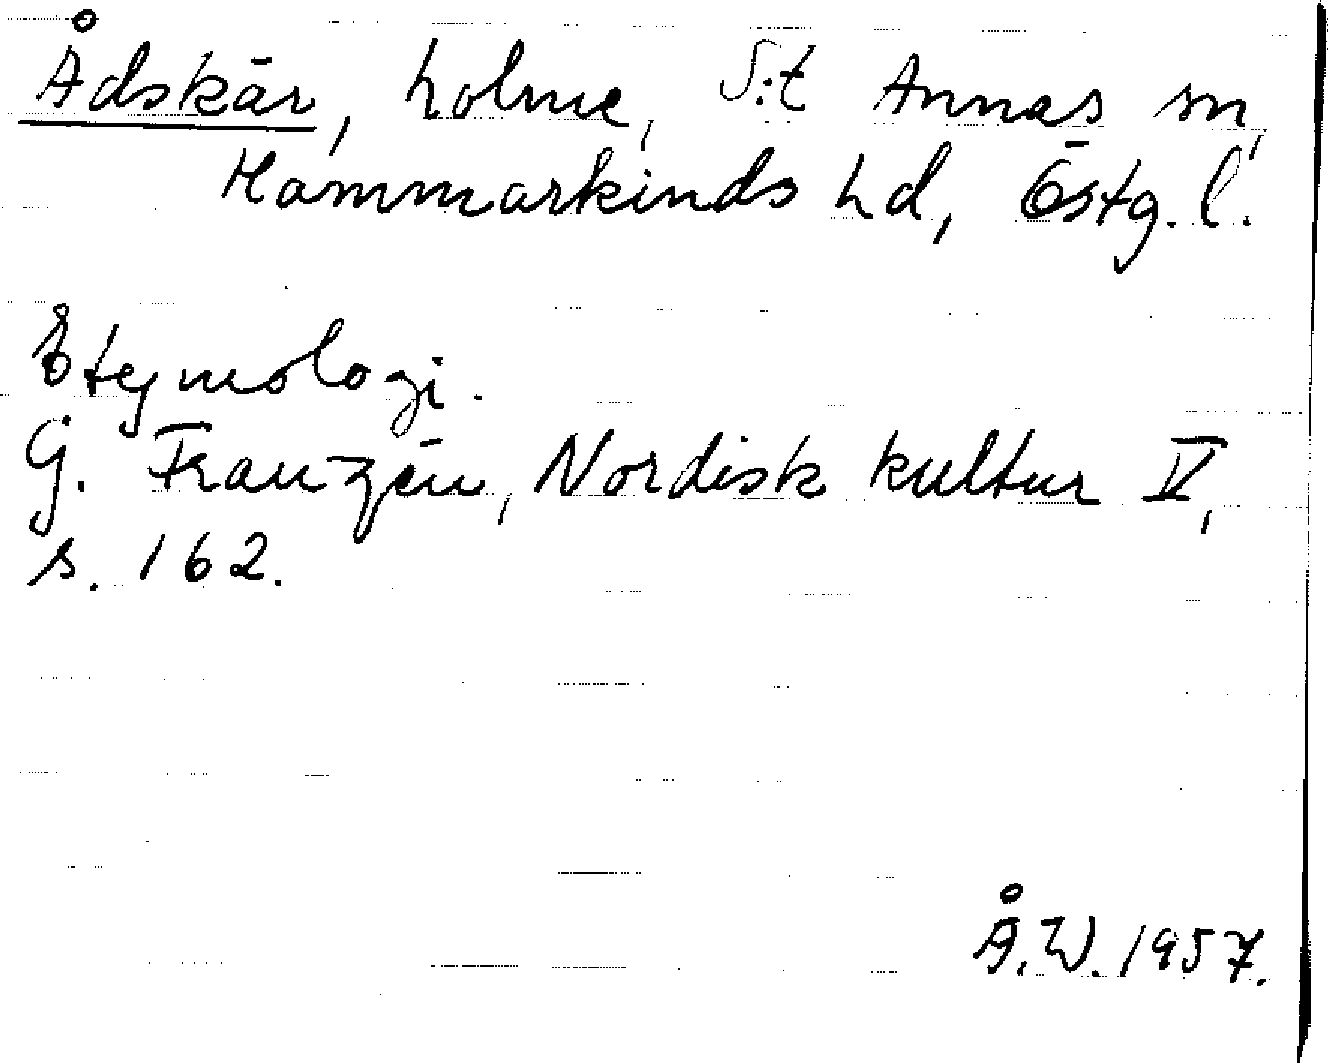 Ådskär, holme, S:t Annas sn,
Hammarkinds hd, Östg. l.
Etymologi.
G. Franzén, Nordisk kultur V,
s. 162.
Å.W. 1957.